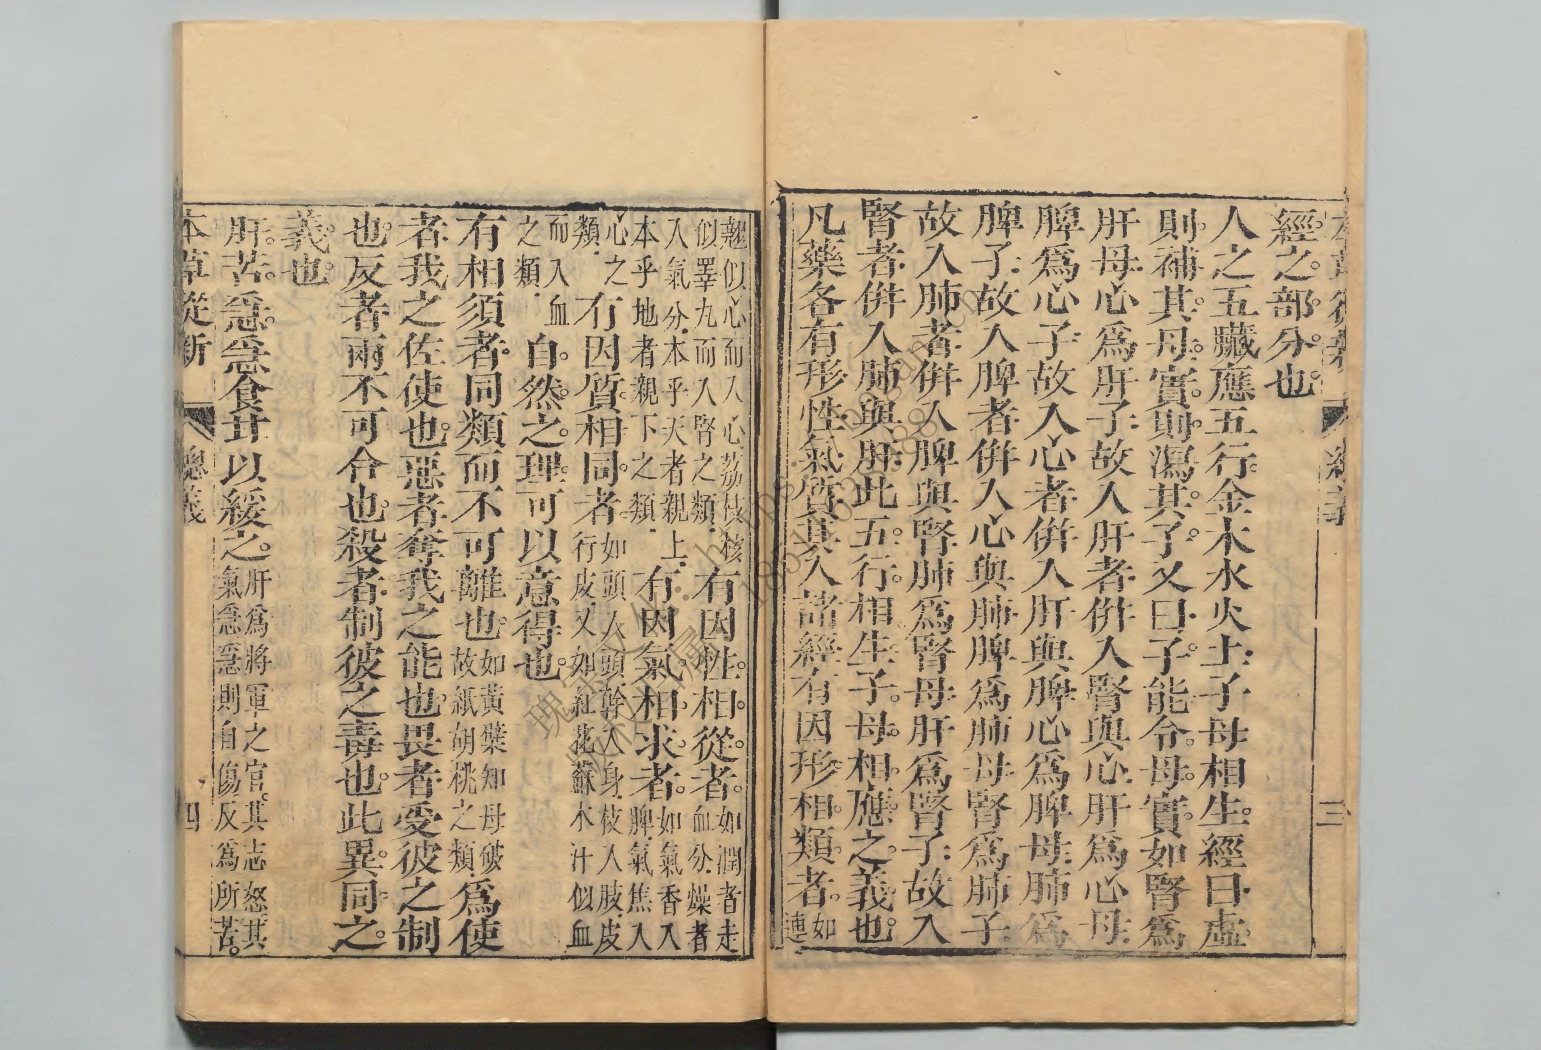 經之部分也
人之五臟應五行金木水火土子母相生經曰虛
則補其母實則瀉其子又曰子能令母實如腎爲
肝母心爲肝子故入肝者倂入腎與心肝爲心母
脾爲心子故入心者倂入肝與脾心爲脾母肺爲
脾子故入脾者倂入心與肺脾爲肺母腎爲肺子
故入肺者倂入脾與腎肺爲腎母肝爲腎子故入
腎者倂入肺與肝此五行相生子母相應之義也
凡藥各有形性氣質其入諸經有因形相類者如連
翹似心而入心荔枝核似睪丸而入腎之類有因性相從者如潤者走血分燥者
入氣分本乎天者親上本乎地者親下之類有因氣相求者如氣香入脾氣焦入
心之類有因質相同者如頭入頭幹入身枝入肢皮行皮又如紅花蘇木汁似血
而入血之類自然之理可以意得也
有相須者同類而不可離也如黃蘗知母破故紙胡桃之類爲使
者我之佐使也惡者奪我之能也畏者受彼之制
也反者兩不可合也殺者制彼之毒也此異同之
義也
肝苦急急食甘以緩之肝爲將軍之官其志怒其氣急急則自傷反爲所苦
本草從新 總義 四